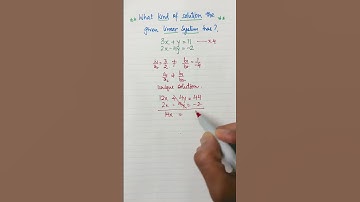 ** What kind of solution the **
given linear system has?.
3x + y = 11 ——×4
2x - 4y = -2
a₁/a₂ = 3/2 ≠ b₁/b₂ = 1/-4
a₁/a₂ ≠ b₁/b₂
Unique solution
12x + 4y = 44
2x - 4y = -2
14x =